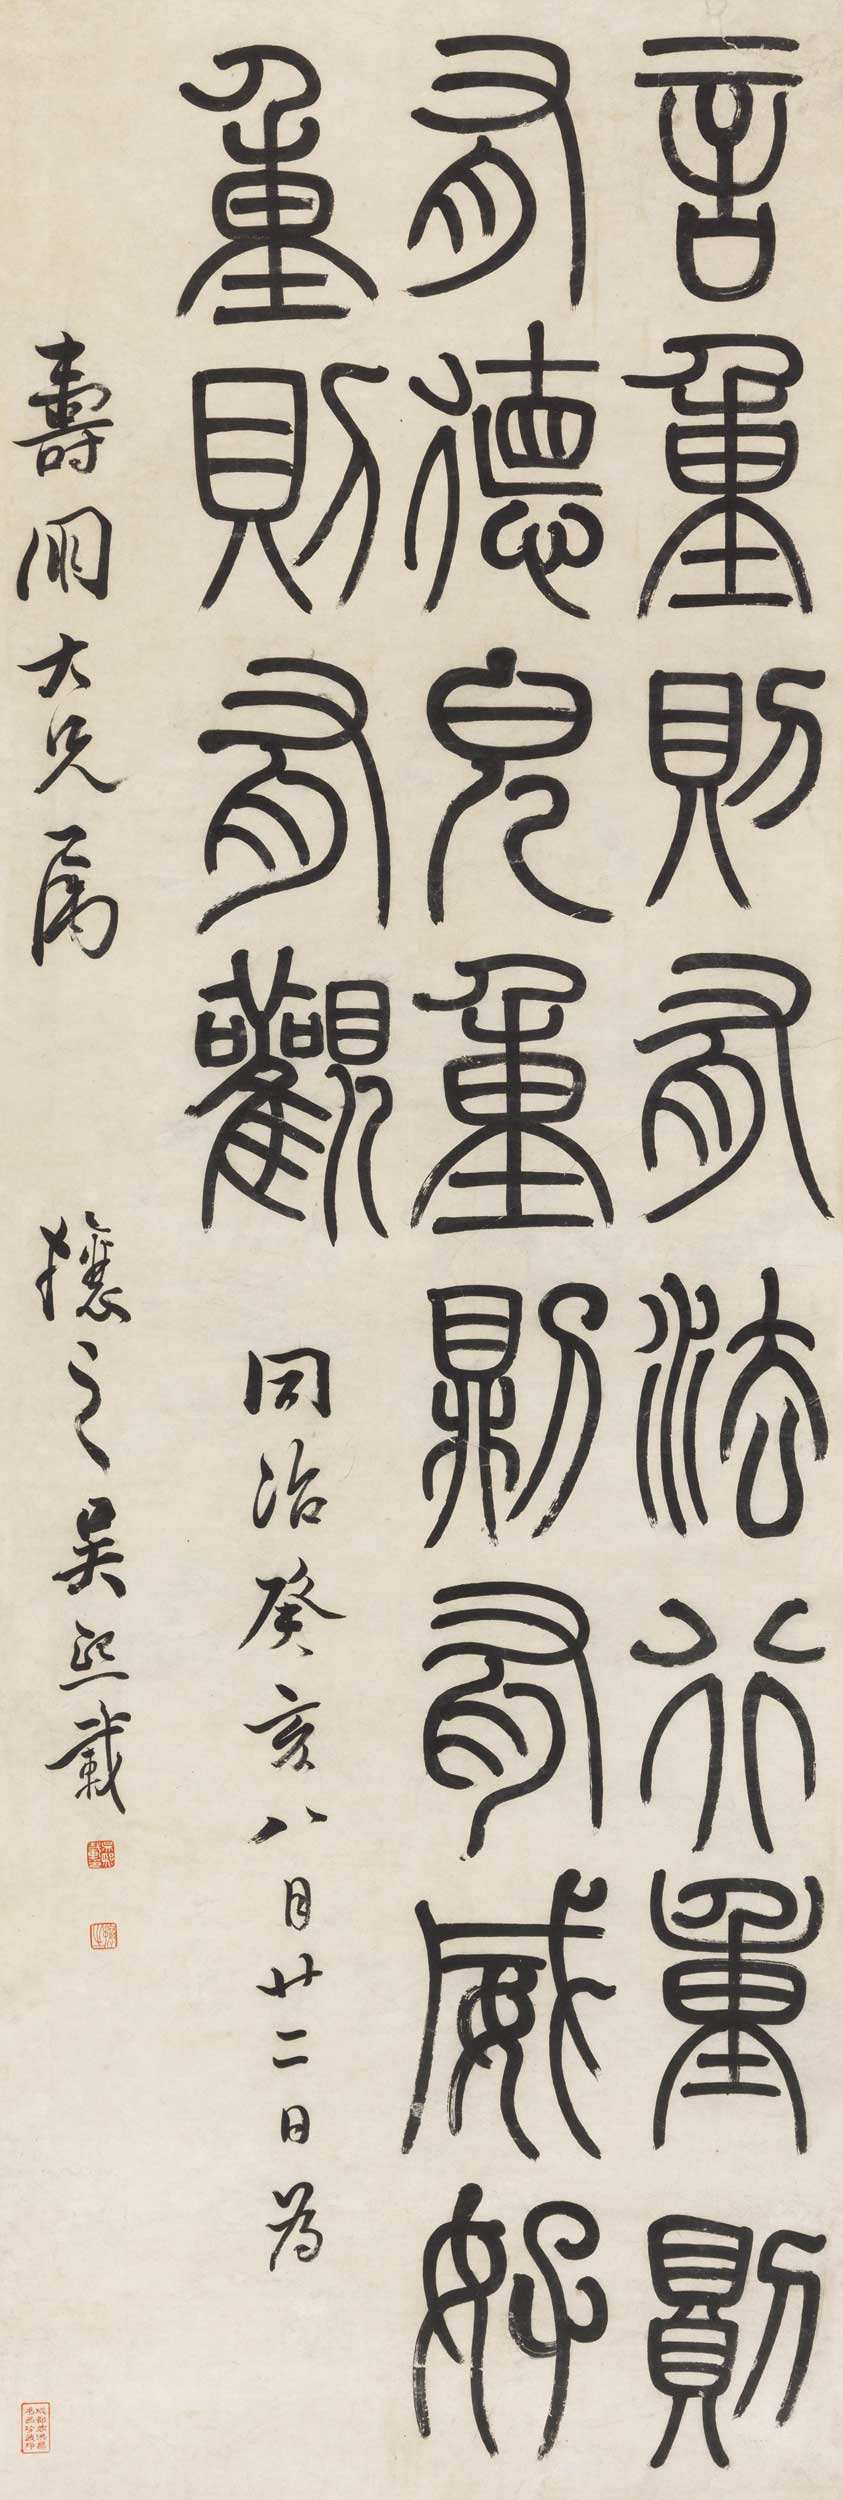 言重則有法行重則
有德皃重則有威好
重則有觀
同治癸亥八月廿二日為
壽朋大兄屬
攘之吳熙載